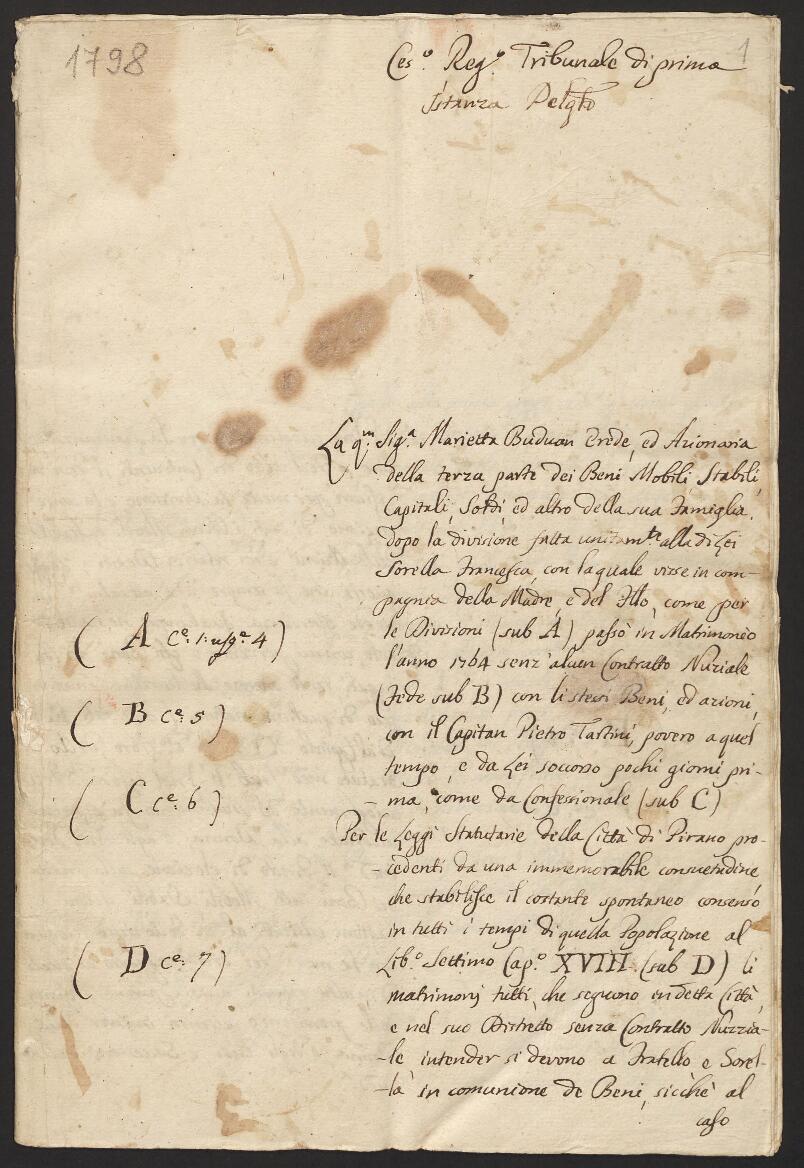 1798
1
Ces.º Reg.º Tribunale di prima
Istanza Delg.to
La q.m Sig.ª Marietta Buduan Erede, ed Azionaria
della terza parte dei Beni Mobili, Stabili,
Capitali, Soldi, ed altro della sua Famiglia,
dopo la divisione fatta unitam.te alla di Lei
Sorella Francesca, con la quale visse in com-
pagnia della Madre, e del, come per
le Divisioni (sub A) passò in Matrimonio
l'anno 1764 senz'alcun Contratto Nuziale
(Fede sub B) con li stessi Beni, ed azioni,
con il Capitan Pietro Tartini, povero a quel
tempo, e da Lei soccorso pochi giorni pri-
-ma, come da Confessionale (sub C)
Per le Leggi Statutarie della Città di Pirano pro-
-cedenti da una immemorabile consuetudine
che stabilisce il costante spontaneo consenso
in tutti i tempi di quella Popolazione al
Lib.º Settimo Cap.º XVIII (sub D) li
matrimonj tutti, che seguono in detta Città,
e nel suo Distretto senza Contratto Nuzzia-
-le intender si devono a Fratello e Sorel-
-la in comunione de Beni, sicchè al
caso
( A C.e: 1: usq.e 4 )
( B C.e: 5 )
( C C.e: 6 )
( D C.e: 7 )